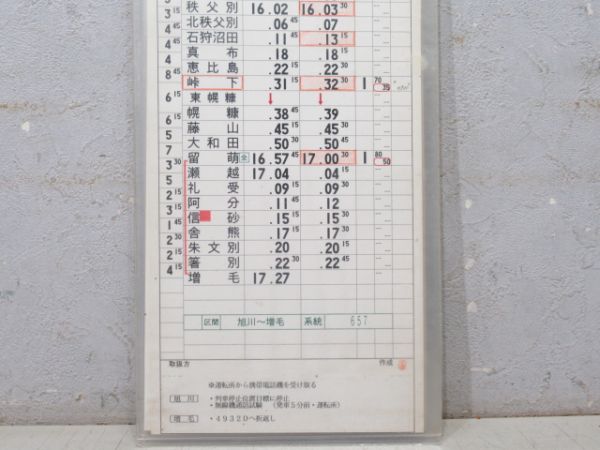 3 秩父別 16.02 45 16.03 30
3 15 北秩父別 .06 45 .07
4 45 石狩沼田 .11 45 .13 15
4 真布 .18 .18 15
3 45 恵比島 .22 15 .22 30
8 45 峠下 .31 15 .32 30 1 70 35
6 15 東幌糠 ↓ ↓
幌糠 .38 45 .39
6 15 藤山 .45 15 .45 30
5 大和田 .50 30 .50 45
7 留萌 全 16.57 45 17.00 30 1 80 50
3 30 瀬越 17.04 .04 15
5 礼受 .09 .09 30
2 15 阿分 .11 45 .12
3 15 信砂 .15 .15 30
1 45 舎熊 .17 15 .17 30
2 30 朱文別 .20 .20 15
2 15 箸別 .22 30 .22 45
4 15 増毛 17.27
区間 旭川～増毛 系統 657
取扱方 作成
※運転所から携帯電話機を受け取る
旭川 ・列車停止位置目標に停止
・無線機通話試験 (発車5分前・運転所)
増毛 ・4932Dへ折返し